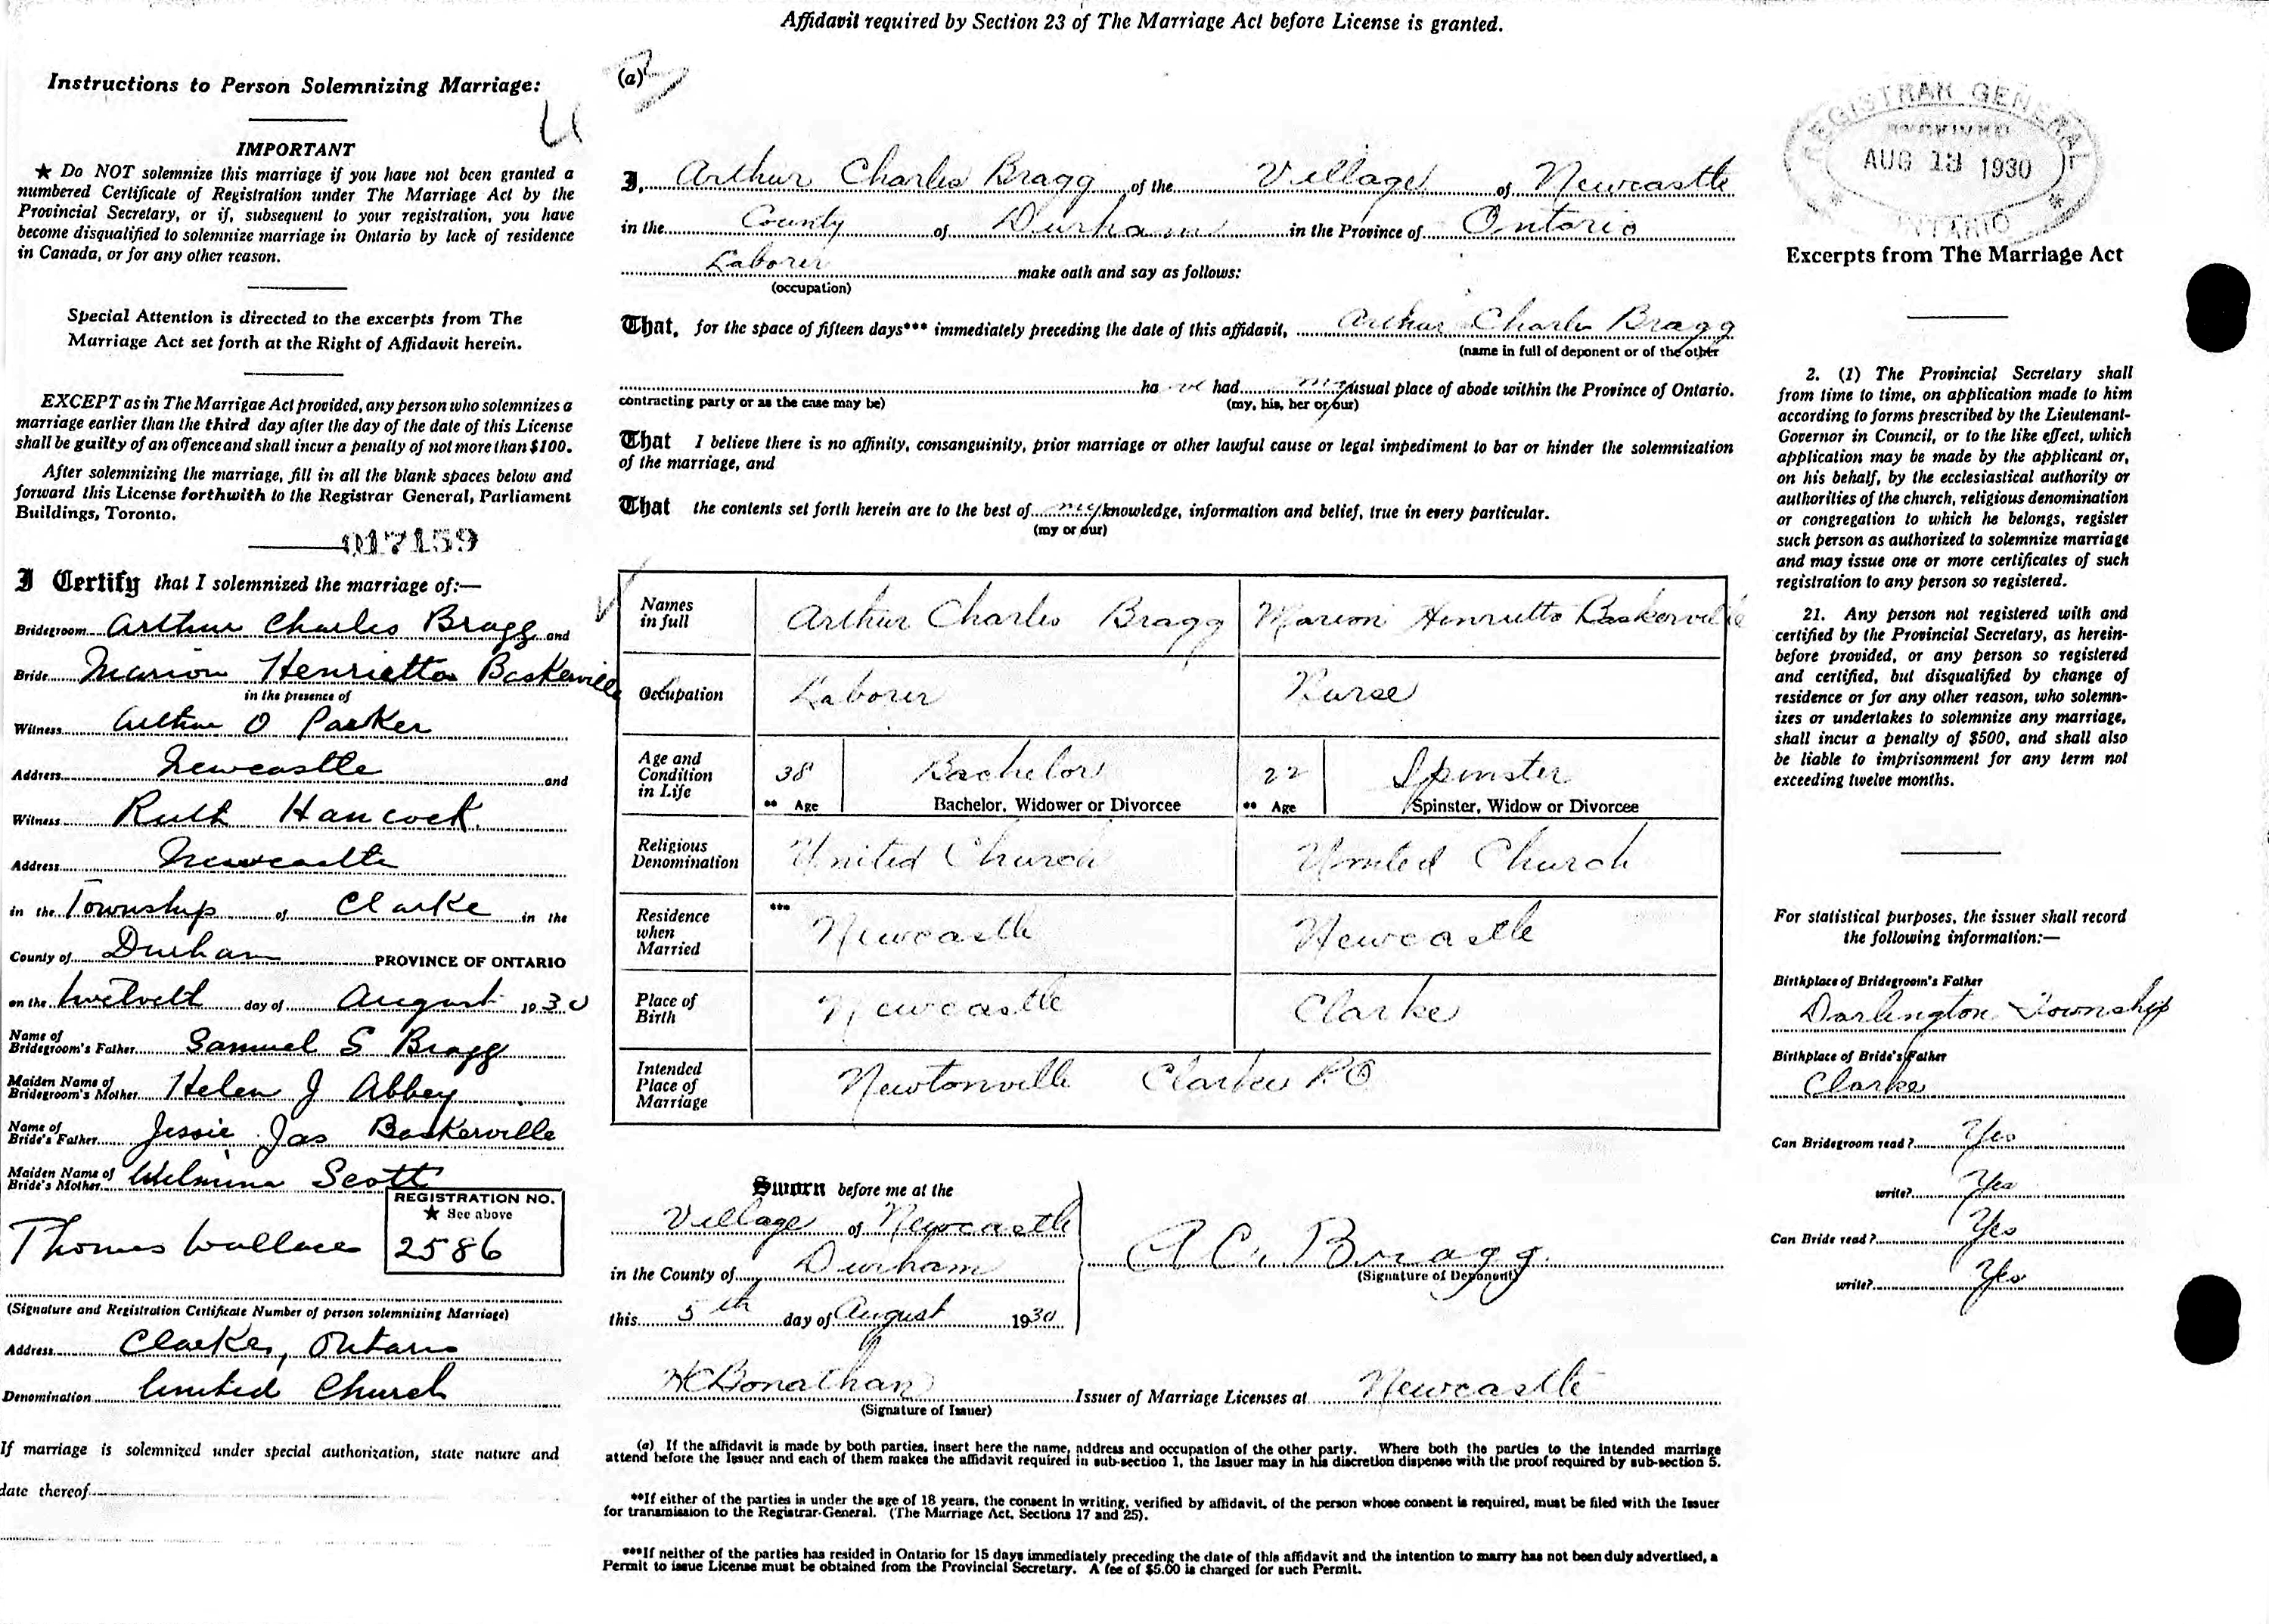 Affidavit required by Section 23 of The Marriage Act before License is granted.
Instructions to Person Solemnizing Marriage:
IMPORTANT
★ Do NOT solemnize this marriage if you have not been granted a
numbered Certificate of Registration under The Marriage Act by the
Provincial Secretary, or if, subsequent to your registration, you have
become disqualified to solemnize marriage in Ontario by lack of residence
in Canada, or for any other reason.
Special Attention is directed to the excerpts from The
Marriage Act set forth at the Right of Affidavit herein.
EXCEPT as in The Marrigae Act provided, any person who solemnizes a
marriage earlier than the third day after the day of the date of this License
shall be guilty of an offence and shall incur a penalty of not more than $100.
After solemnizing the marriage, fill in all the blank spaces below and
forward this License forthwith to the Registrar General, Parliament
Buildings, Toronto.
017159
I Certify that I solemnized the marriage of:—
Bridegroom Arthur Charles Bragg and
Bride Marion Henrietta Baskerville
in the presence of
Witness Arthur O Parker
Address Newcastle and
Witness Ruth Hancock
Address Newcastle
in the Township of Clarke in the
County of Durham PROVINCE OF ONTARIO
on the twelvelt day of August 1930
Name of
Bridegroom's Father Samuel S Bragg
Maiden Name of
Bridegroom's Mother Helen J Abbey
Name of
Bride's Father Jessie Jas Baskerville
Maiden Name of
Bride's Mother Welmina Scott
REGISTRATION NO.
★ See above
Thomas Wallace 2586
(Signature and Registration Certificate Number of person solemnizing Marriage)
Address Clarke, Ontario
Denomination United Church
If marriage is solemnized under special authorization, state nature and
date thereof
(a)
I, Arthur Charles Bragg of the Village of Newcastle
in the County of Durham in the Province of Ontario
Laborer make oath and say as follows:
(occupation)
That, for the space of fifteen days*** immediately preceding the date of this affidavit, Arthur Charles Bragg
(name in full of deponent or of the other
ha ve had my usual place of abode within the Province of Ontario.
contracting party or as the case may be) (my, his, her or our)
That I believe there is no affinity, consanguinity, prior marriage or other lawful cause or legal impediment to bar or hinder the solemnization
of the marriage, and
That the contents set forth herein are to the best of my knowledge, information and belief, true in every particular.
(my or our)
Names
in full Arthur Charles Bragg Marion Henrietta Baskerville
Occupation Laborer Nurse
Age and
Condition
in Life 38 Bachelor 22 Spinster
** Age Bachelor, Widower or Divorcee ** Age Spinster, Widow or Divorcee
Religious
Denomination United Church United Church
Residence
when
Married *** Newcastle Newcastle
Place of
Birth Newcastle Clarke
Intended
Place of
Marriage Newtonville Clarke P.O
Sworn before me at the
Village of Newcastle
in the County of Durham
this 5th day of August 1930
A C. Bragg.
(Signature of Deponent)
H C Bonathan Issuer of Marriage Licenses at Newcastle
(Signature of Issuer)
(a) If the affidavit is made by both parties, insert here the name, address and occupation of the other party. Where both the parties to the intended marriage
attend before the Issuer and each of them makes the affidavit required in sub-section 1, the Issuer may in his discretion dispense with the proof required by sub-section 5.
**If either of the parties is under the age of 18 years, the consent in writing, verified by affidavit, of the person whose consent is required, must be filed with the Issuer
for transmission to the Registrar-General. (The Marriage Act, Sections 17 and 25).
***If neither of the parties has resided in Ontario for 15 days immediately preceding the date of this affidavit and the intention to marry has not been duly advertised, a
Permit to issue License must be obtained from the Provincial Secretary. A fee of $5.00 is charged for such Permit.
REGISTRAR GENERAL
RECEIVED
AUG 1930
ONTARIO
Excerpts from The Marriage Act
2. (1) The Provincial Secretary shall
from time to time, on application made to him
according to forms prescribed by the Lieutenant-
Governor in Council, or to the like effect, which
application may be made by the applicant or,
on his behalf, by the ecclesiastical authority or
authorities of the church, religious denomination
or congregation to which he belongs, register
such person as authorized to solemnize marriage
and may issue one or more certificates of such
registration to any person so registered.
21. Any person not registered with and
certified by the Provincial Secretary, as herein-
before provided, or any person so registered
and certified, but disqualified by change of
residence or for any other reason, who solemn-
izes or undertakes to solemnize any marriage,
shall incur a penalty of $500, and shall also
be liable to imprisonment for any term not
exceeding twelve months.
For statistical purposes, the issuer shall record
the following information:—
Birthplace of Bridegroom's Father
Darlington Township
Birthplace of Bride's Father
Clarke
Can Bridegroom read? Yes
write? Yes
Can Bride read? Yes
write? Yes